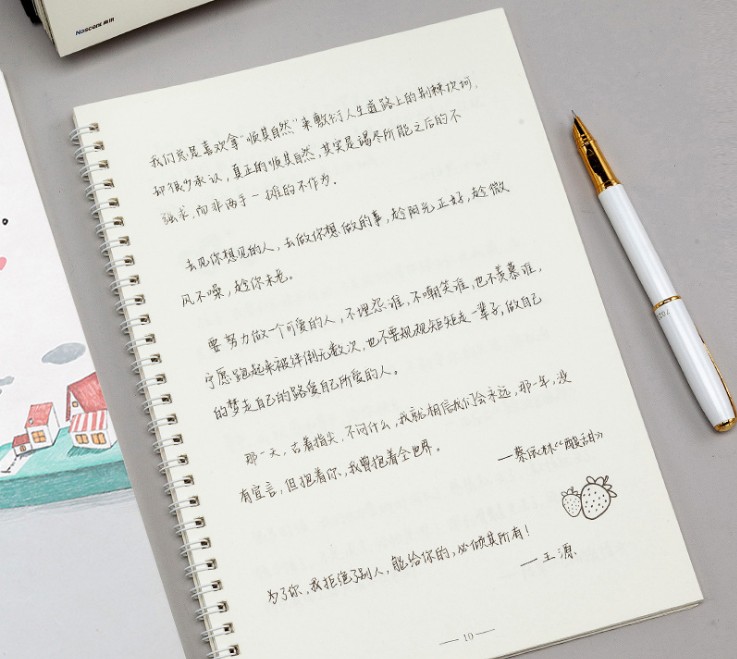 Nascent 南讯
我们总是喜欢拿“顺其自然”来敷衍人生道路上的荆棘坎坷,
却很少承认,真正的顺其自然,其实是竭尽所能之后的不
强求,而非两手一摊的不作为。
去见你想见的人,去做你想做的事,趁阳光正好,趁微
风不噪,趁你未老。
要努力做一个可爱的人,不埋怨谁,不嘲笑谁,也不羡慕谁,
宁愿跑起来被绊倒无数次,也不要规规矩矩走一辈子,做自己
的梦走自己的路爱自己所爱的人。
那一天,古着指尖,不问什么,我就相信我们会永远,那一年,没
有宣言,但抱着你,我曾抱着全世界。
—蔡依林《酸甜》
为了你,我拒绝了别人,能给你的,必倾其所有!
—王源
— 10 —